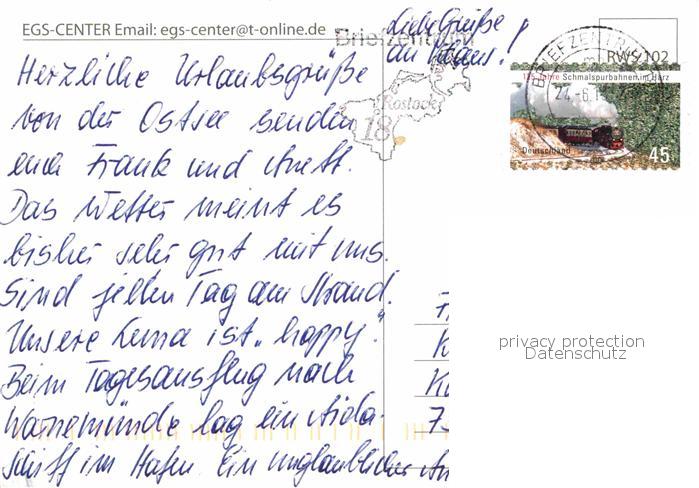 EGS-CENTER Email: egs-center@t-online.de
Liebe Grüße
an Klaus!
Herzliche Urlaubsgrüße
von der Ostsee senden
euch Frank und Anett.
Das Wetter meint es
bisher sehr gut mit uns.
Sind jeden Tag am Strand.
Unsere Luna ist „happy“.
Beim Tagesausflug nach
Warnemünde lag ein Aida-
schiff im Hafen. Ein unglaublicher An
Briefzentrum
18
Rostock
BRIEFZENTRUM
24.-6.1
RWS 102
125 Jahre Schmalspurbahnen im Harz
Deutschland
45
K
K
75
privacy protection
Datenschutz